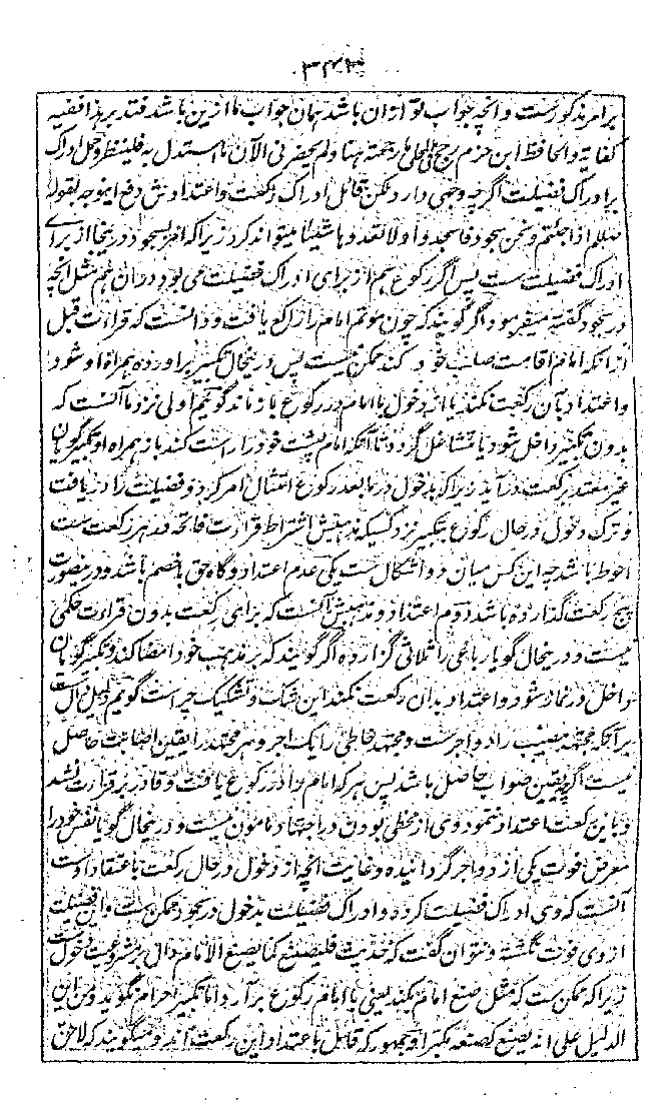 برامر مذکورست و انچه جواب تو ازان باشد همان جواب ما ازین باشد فتدبر هذا ففیه
کفایة و الحافظ ابن حزم رجح المحلی ههنا و لم یحضرنی الآن ما استدل به فلینظر و حمل ادراک
بر ادراک فضیلت اگرچه وجهی دارد لکن قائل ادراک رکعت و اعتدادش دفع اینوجه بقوله
صلعم اذا جئتم و نحن سجود فاسجدوا و لا تعدوها شیئا میتواند کرد زیراکه امر بسجود درینجا از برای
ادراک فضیلت ست پس اگر رکوع هم از برای ادراک فضیلت می بود دران هم مثل انچه
در سجود گفته میفرمود اگر گویند که چون مؤتم امام را راکع یافت و دانست که قراءت قبل
ازانکه امام اقامت صلب خود کند ممکن نیست پس درینحال تکبیر برآورده همراه او شود
و اعتداد بآن رکعت نکند یا از دخول با امام در رکوع باز ماند گوئیم اولی نزد ما آنست که
بدون تکبیر داخل شود یا متشاغل گردد تا آنکه امام پشت خود را راست کند باز همراه او تکبیر گویان
غیر معتد برکعت درآید زیراکه بدخول در ما بعد رکوع امتثال امر کرد و فضیلت را دریافت
و ترک دخول در حال رکوع بتکبیر نزد کسیکه مذهبش اشتراط قراءت فاتحه در هر رکعت ست
احوط باشد چه این کس میان دو اشکال ست یکی عدم اعتداد و گاه حق با خصم باشد و درینصورت
پنج رکعت گذارده باشد دوم اعتداد و مذهبش آنست که برای رکعت بدون قراءت حکمی
نیست و درینحال گویا رباعی را ثلاثی گزارده اگر گویند که بر مذهب خود امضا کند و تکبیر گویان
داخل در نماز شود و اعتداد بدان رکعت نکند این شک و تشکیک چراست گوئیم دلیل دال ست
برآنکه مجتهد مصیب را دو اجرست و مجتهد خاطی را یک اجر و هر مجتهد را یقین اصابت حاصل
نیست اگرچه یقین صواب حاصل باشد پس هر که امام را در رکوع یافت و قادر بر قراءت نشد
و باین رکعت اعتداد ننمود وی از مخطی بودن در اجتهاد مامون نیست و درینحال گویا نفس خود را
معرض فوت یکی از دو اجر گردانیده و غایت انچه از دخول در حال رکعت با اعتقاد اوست
آنست که وی ادراک فضیلت کرده و ادراک فضیلت بدخول در سجود ممکن ست و این فضیلت
از وی فوت نگشته و نتوان گفت که حدیث فلیصنع کما یصنع الامام دال بر مشروعیت دخول ست
زیراکه ممکن ست که مثل صنع امام بکند یعنی با امام رکوع برآرد اما تکبیر احرام نگوید و من این
الدلیل علی انه یصنع کصنعه مکبرا و جمهور که قائل باعتداد این رکعت اند و میگویند که لاحق